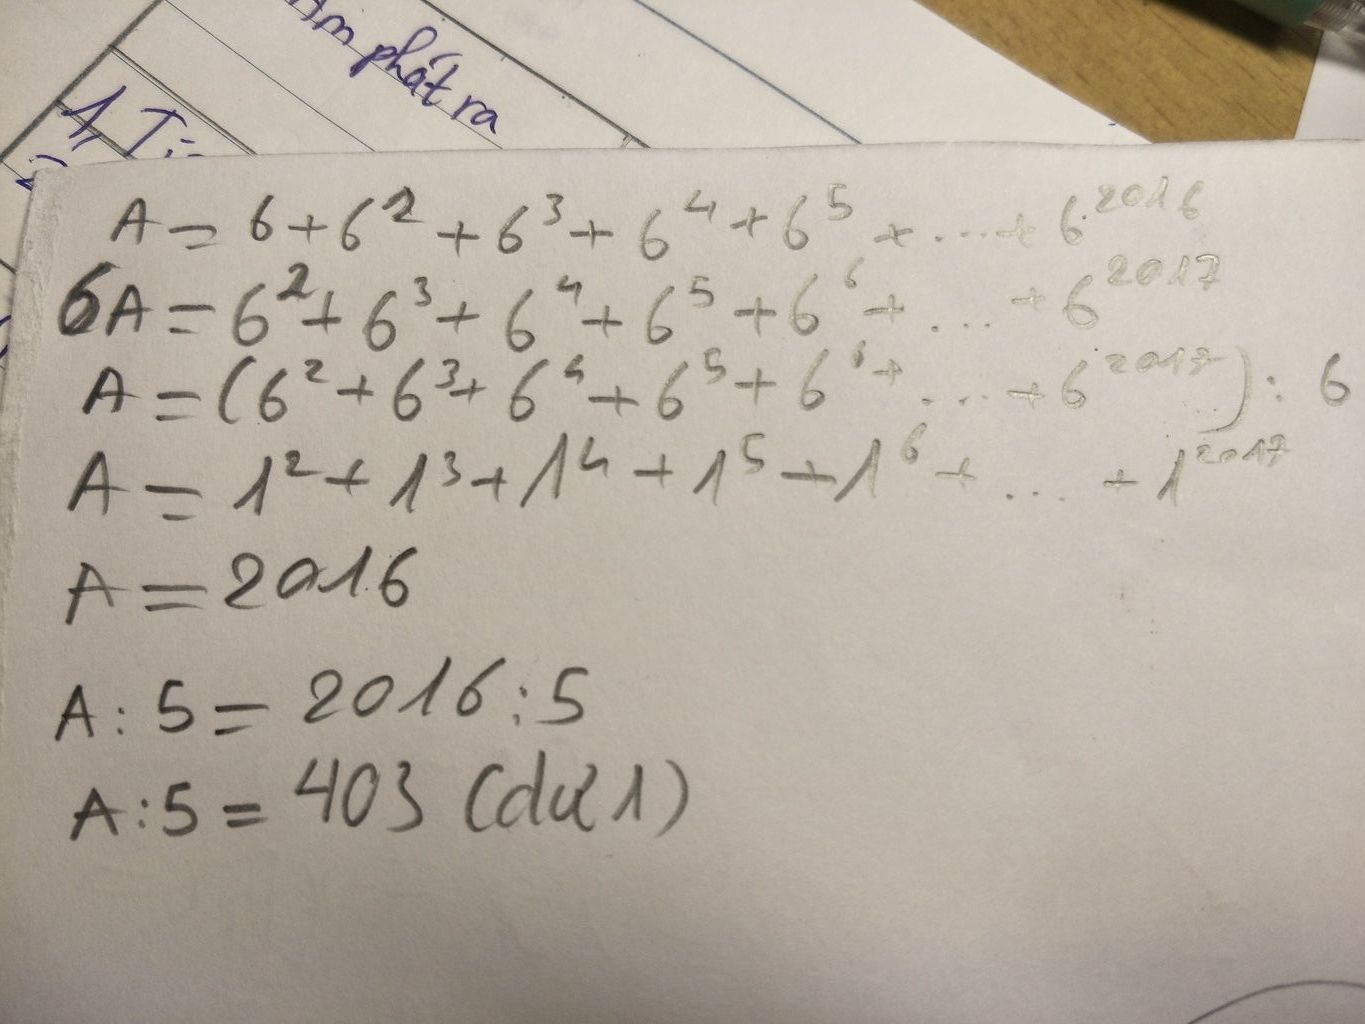 ầm phát ra
1, Ti
A = 6 + 6² + 6³ + 6⁴ + 6⁵ + ... + 6²⁰¹⁶
6A = 6² + 6³ + 6⁴ + 6⁵ + 6⁶ + ... + 6²⁰¹⁷
A = (6² + 6³ + 6⁴ + 6⁵ + 6⁶ + ... + 6²⁰¹⁷) : 6
A = 1² + 1³ + 1⁴ + 1⁵ + 1⁶ + ... + 1²⁰¹⁷
A = 2016
A : 5 = 2016 : 5
A : 5 = 403 (dư 1)